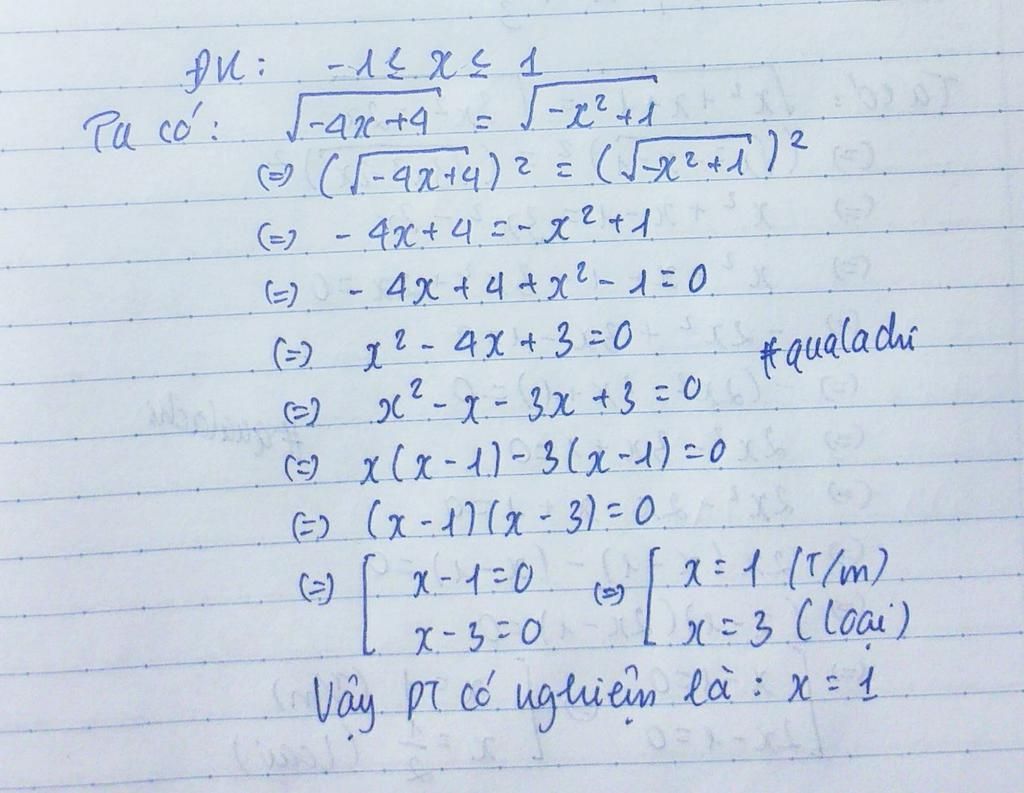 ĐK: -1 ≤ x ≤ 1
Ta có: √(-4x+4) = √(-x²+1)
(=) (√(-4x+4))² = (√(-x²+1))²
(=) - 4x + 4 = - x² + 1
(=) - 4x + 4 + x² - 1 = 0
(=) x² - 4x + 3 = 0
#qualachi
(=) x² - x - 3x + 3 = 0
(=) x(x-1) - 3(x-1) = 0
(=) (x-1)(x-3) = 0
(=) [ x-1=0 (=) [ x = 1 (T/m)
x-3=0 x = 3 (loại)
Vậy PT có nghiệm là: x = 1